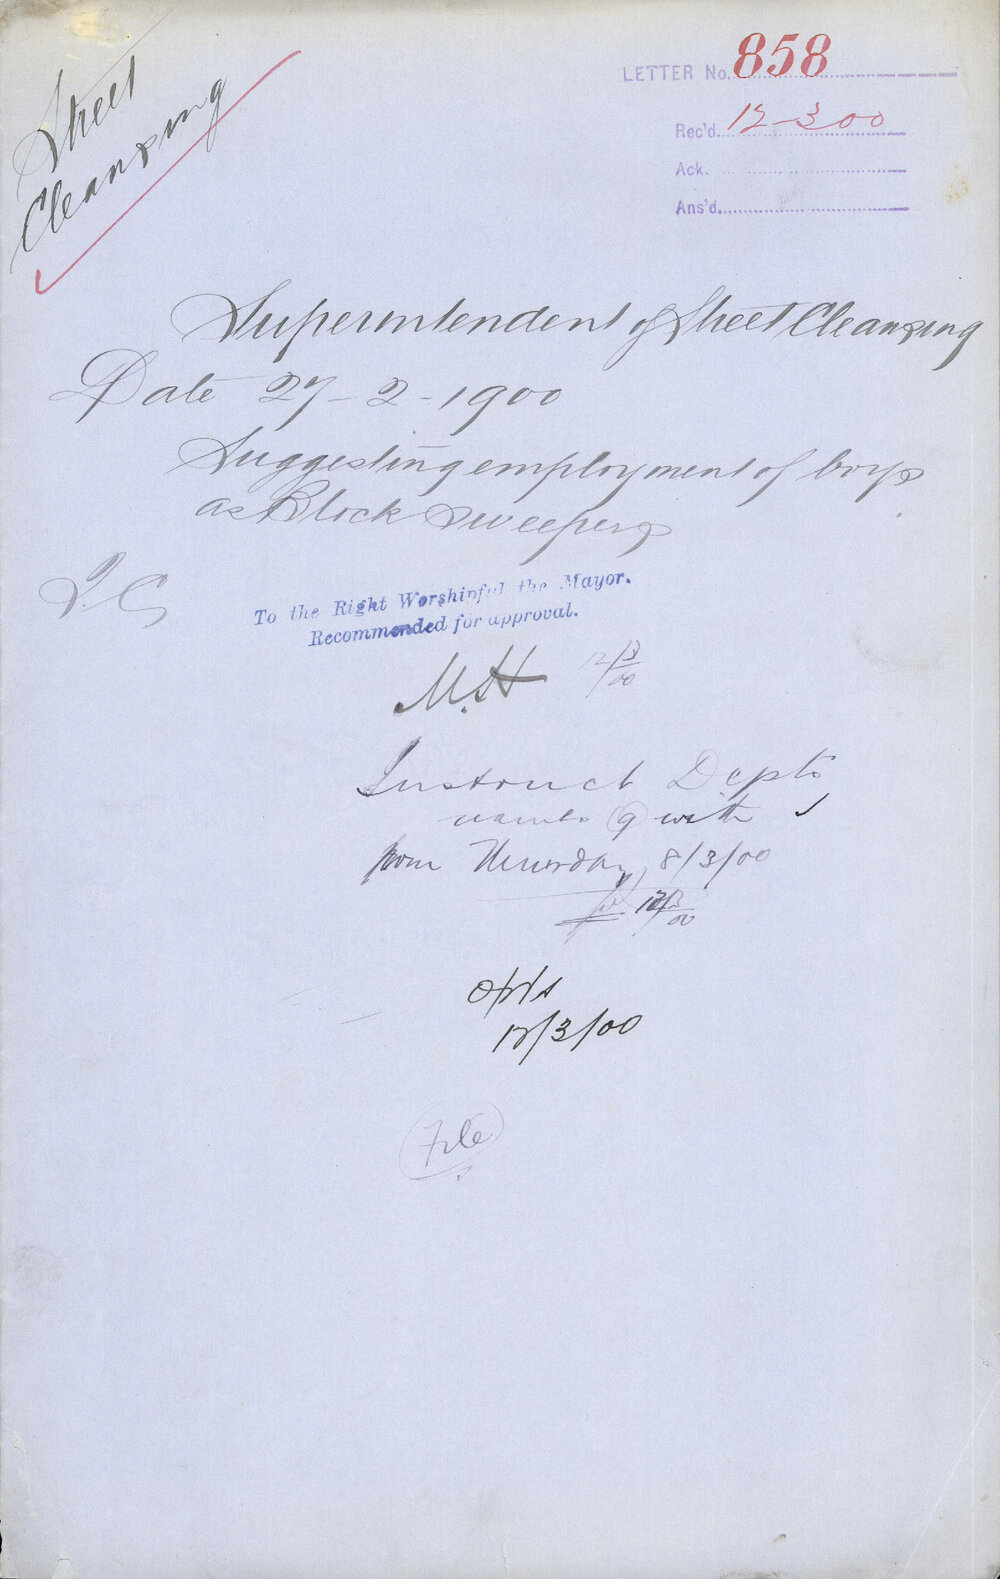 Street
Cleansing
LETTER No. 858
Rec'd. 12-3 00
Ack.
Ans'd.
Superintendent of Street Cleansing
Date 27-2-1900
Suggesting employment of boys
as Block Sweepers
T.C
To the Right Worshipful the Mayor.
Recommended for approval.
M.H 12/3/00
Instruct Depts
with
from Thursday 8/3/00
12/3/00
12/3/00
File